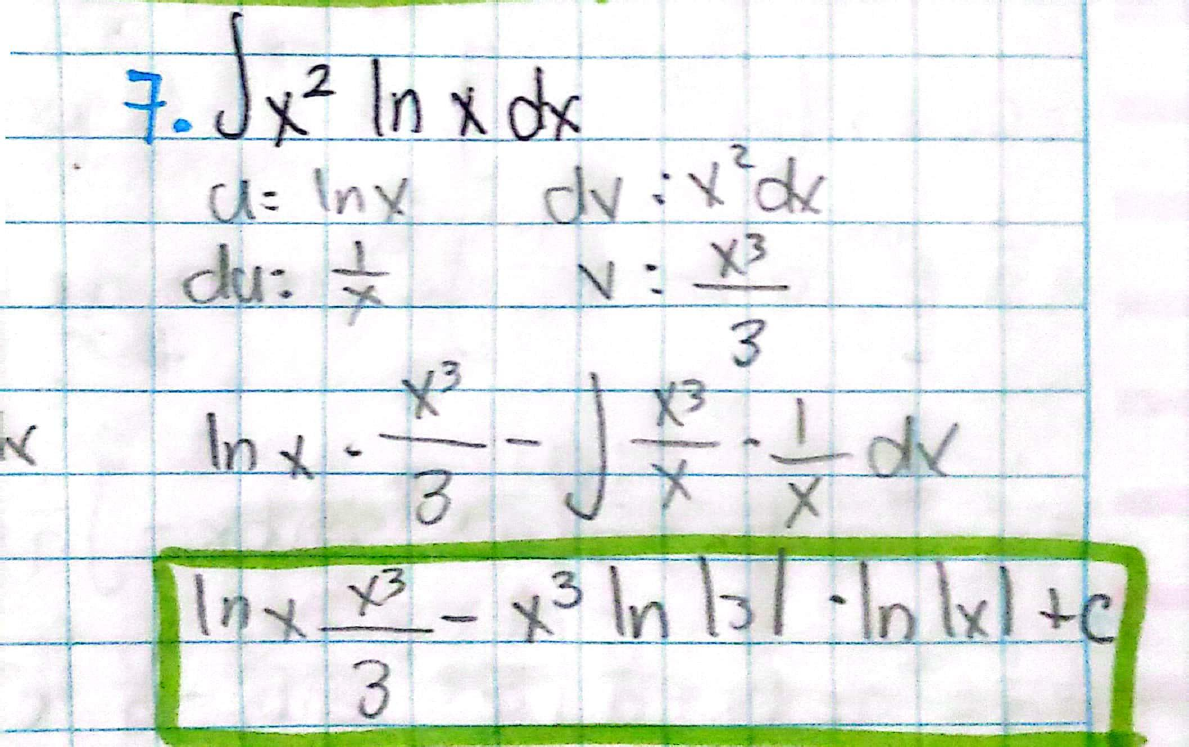 7. ∫x² ln x dx
u= lnx dv: x²dx
du: 1/x v: x³/3
ln x · x³/3 - ∫ x³/x · 1/x dx
ln x x³/3 - x³ ln |3| · ln |x| + c